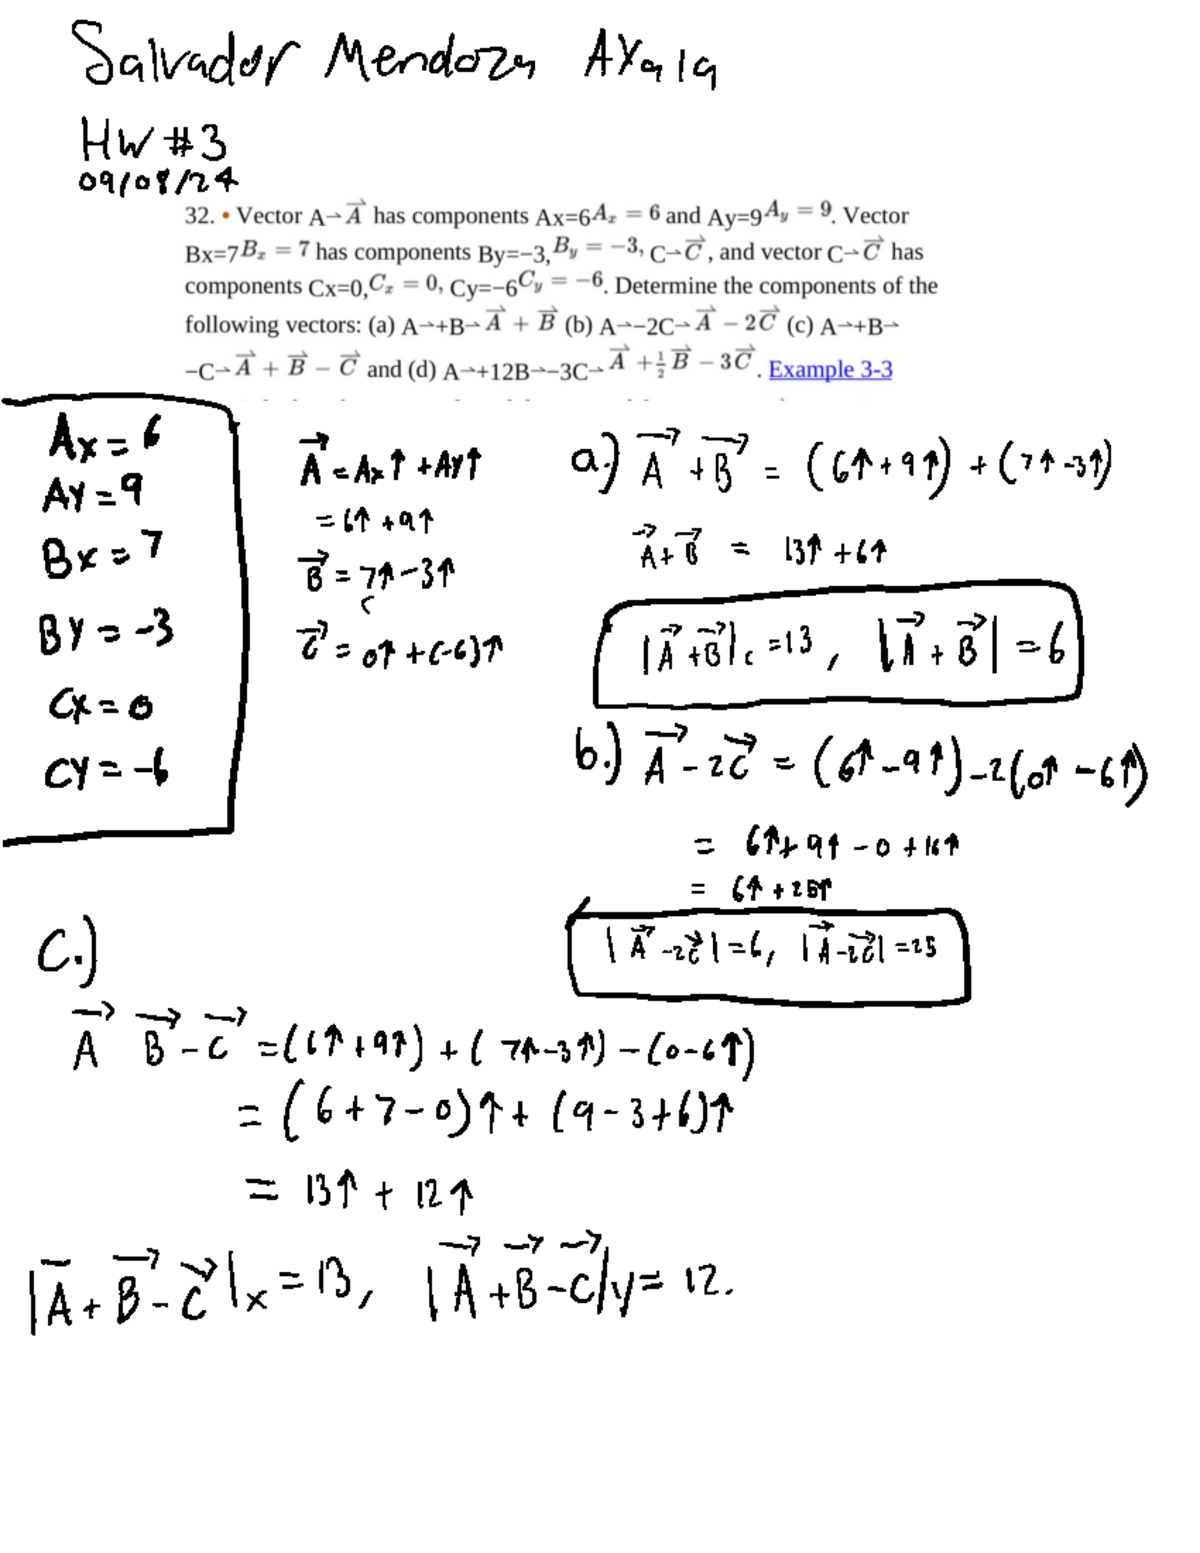 Salvador Mendoza AYala
HW #3
09/08/24
32. • Vector A⇀ \vec{A} has components Ax=6 A_x = 6 and Ay=9 A_y = 9. Vector
Bx=7 B_x = 7 has components By=−3, B_y = −3, C⇀ \vec{C}, and vector C⇀ \vec{C} has
components Cx=0, C_x = 0, Cy=−6 C_y = −6. Determine the components of the
following vectors: (a) A⇀+B⇀ \vec{A} + \vec{B} (b) A⇀−2C⇀ \vec{A} − 2\vec{C} (c) A⇀+B⇀
−C⇀ \vec{A} + \vec{B} − \vec{C} and (d) A⇀+12B⇀−3C⇀ \vec{A} + ½\vec{B} − 3\vec{C}. Example 3-3
Ax = 6
AY = 9
Bx = 7
BY = -3
Cx = 0
CY = -6
\vec{A} = Ax↑ + AY↑
= 6↑ + 9↑
\vec{B} = 7↑ - 3↑
\vec{C} = 0↑ + (-6)↑
a.) \vec{A} + \vec{B} = (6↑ + 9↑) + (7↑ - 3↑)
\vec{A} + \vec{B} = 13↑ + 6↑
|\vec{A} + \vec{B}|c = 13, |\vec{A} + \vec{B}| = 6
b.) \vec{A} - 2\vec{C} = (6↑ - 9↑) - 2(0↑ - 6↑)
= 6↑ + 9↑ - 0 + 16↑
= 6↑ + 25↑
|\vec{A} - 2\vec{C}| = 6, |\vec{A} - 2\vec{C}| = 25
C.)
\vec{A} \vec{B} - \vec{C} = (6↑ + 9↑) + (7↑ - 3↑) - (0 - 6↑)
= (6 + 7 - 0)↑ + (9 - 3 + 6)↑
= 13↑ + 12↑
|\bar{A} + \vec{B} - \vec{C}|x = 13, |\vec{A} + \vec{B} - \vec{C}|y = 12.